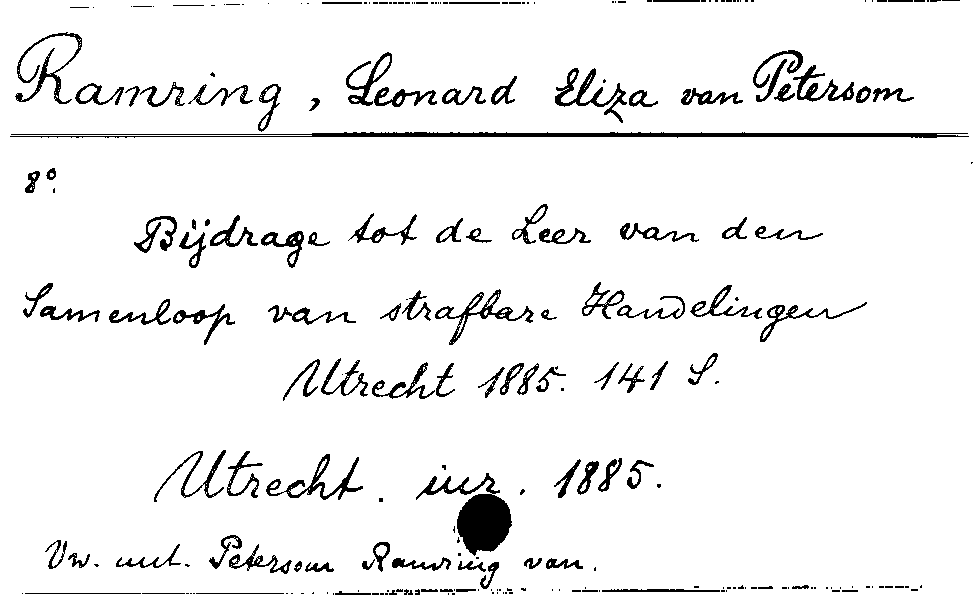 Ramring, Leonard Eliza van Petersom
8°.
Bijdrage tot de Leer van den
Samenloop van strafbare Handelingen
Utrecht 1885. 141 S.
Utrecht. iur. 1885.
Vw. unt. Petersom Ramring van.